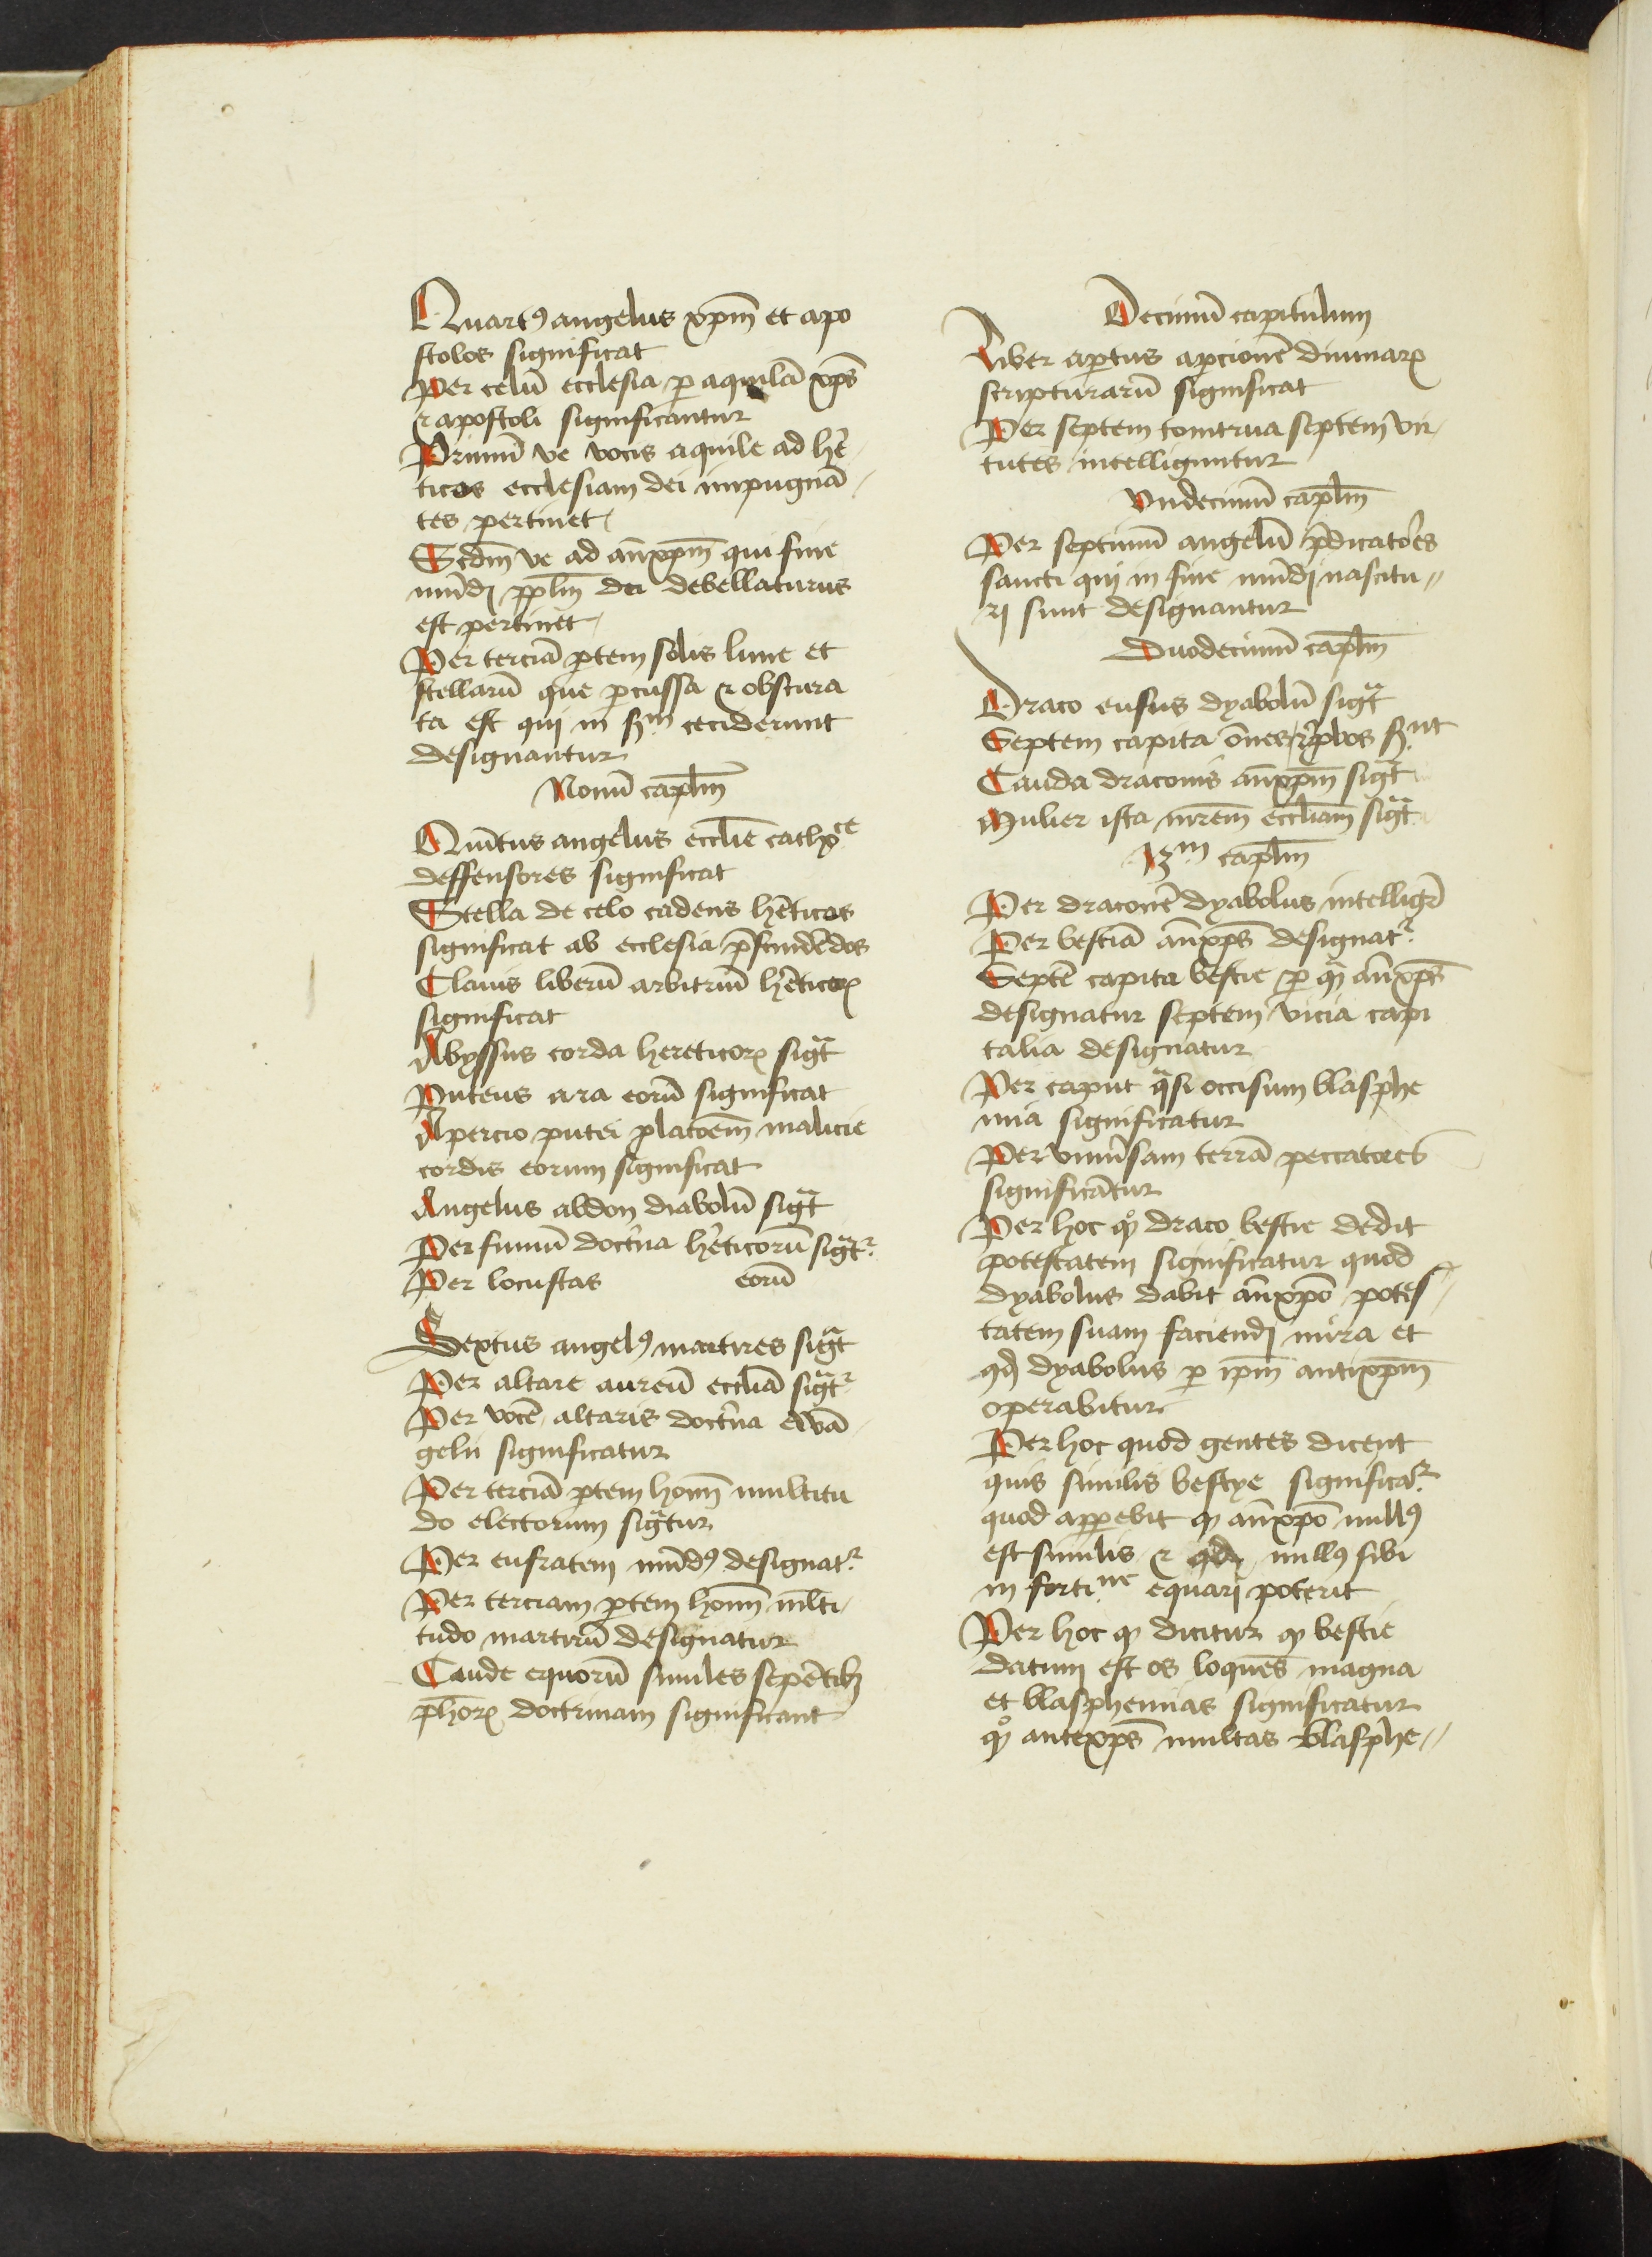 Quartꝰ angelus xp̄m et apo
stolos significat
Per celū ecclesia ꝑ aquilā xp̄s
⁊ apostoli significantur
Primū ve vocis aquile ad he᷒
ticos ecclesiam dei impugnā
tes pertinet
Scd̄m ve ad an̄xp̄m qui fine
mūdj pp̄lm dei debellaturus
est pertinet
Per terciā ꝑtem solis lune et
stellarū que ꝑcussa ⁊ obscura
ta est qui in ceciderunt
designantur
Nonū cap̄lm
Quītus angelus ecclīe cathoᶜᵉ
deffensores significat
Stella de celo cadens he᷒ticos
significat ab ecclesia p̄scindēdos
Clauis liberū arbitriū he᷒ticoꝝ
significat
Abyssus corda hereticoꝝ sigᵃt
Puteus ara eorū significat
Apercio putei ꝑlacoēm malicie
cordis eorum significat
Angelus abdon diabolū sigᵃt
Per fumū doctⁱna he᷒ticorū sigᵃtᵣ
Per locustas eorū
Sextus angelꝰ martires sigᵃt
Per altare aureū eccliā sigᵃtᵣ
Per vocē altaris doctⁱna ewā
gelii significatur
Per terciā ꝑtem hoīm multitu
do electorum sigᵃtur
Per eufratem mūdꝰ designatᵣ
Per terciam ꝑtem hoīm ml̄ti
tudo martirū designatur
Caude equorū similes sepētibꝫ
ph̄oꝝ doctrinam significant
Decimū capitulum
Liber aꝑtus aꝑcionē diuinaꝝ
scripturarū significat
Per septem tonitrua septem vir
tutes intelliguntur
Vndecimū cap̄lm
Per septimū angelū p̄dicatores
sancti qui in fine mūdj nascitu
rj sunt designantur
Duodecimū cap̄lm
Draco eusus dyabolū sigᵃt
Septem capita ōnes rꝓbos
Cauda draconis an̄xp̄m sigᵃt
Mulier ista mr̄em eccliam sigᵃt
13ᵐ cap̄lm
Per draconē dyabolus intelligᵣ
Per bestiā an̄xp̄s designatᵣ
Septē capita bestie ꝑ quā an̄xp̄s
designatur septem vicia capi
talia designatur
Per caput qᵃsi occisum blasphe
mia significatur
Per vniuᵉsam terrā peccatores
significātur
Per hoc qͦ draco bestie dedit
potestatem significatur quod
dyabolus dabit an̄xp̄o potes
tatem suam faciendj mira et
qd̄ dyabolus ꝑ ip̄m antixp̄m
operabitur
Per hoc quod gentes dicent
quis similis bestye significaᵣ
quod apparebit ꝙ an̄xp̄o nullꝰ
est similis ⁊ nullꝰ sibi
in fortiⁿᵉ equari poterit
Per hoc ꝙ dicitur ꝙ bestie
datum est os loquēs magna
et blasphemias significatur
qͦ antexp̄s multas blasphe